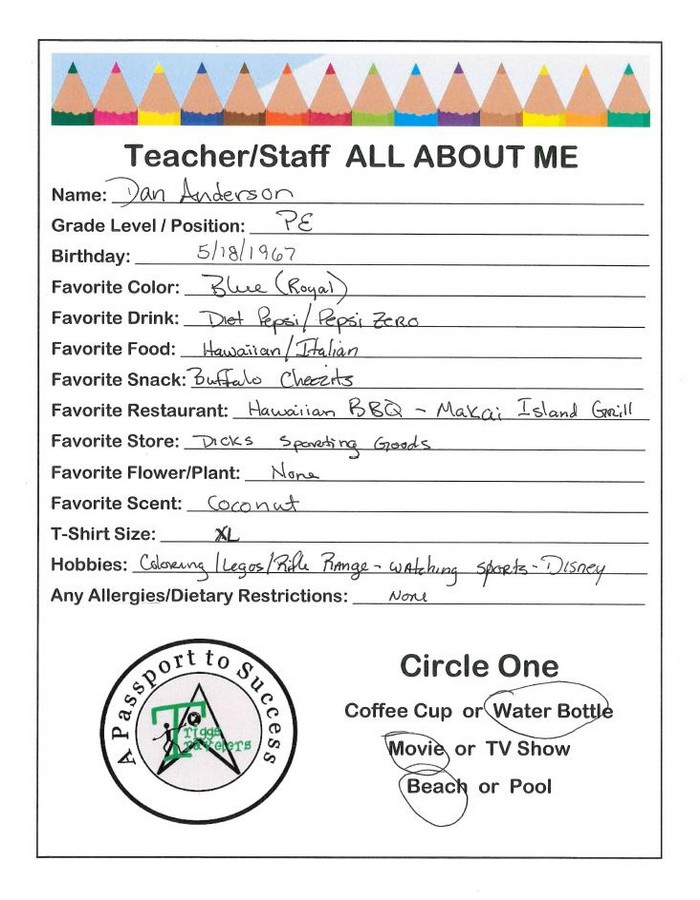 Teacher/Staff ALL ABOUT ME
Name: Dan Anderson
Grade Level / Position: PE
Birthday: 5/18/1967
Favorite Color: Blue (Royal)
Favorite Drink: Diet Pepsi/Pepsi Zero
Favorite Food: Hawaiian/Italian
Favorite Snack: Buffalo Cheezits
Favorite Restaurant: Hawaiian BBQ - Makai Island Grill
Favorite Store: Dicks Sporting Goods
Favorite Flower/Plant: None
Favorite Scent: Coconut
T-Shirt Size: XL
Hobbies: Coloring/Legos/Rifle Range - watching sports - Disney
Any Allergies/Dietary Restrictions: None
A Passport to Success
Triggs
Travelers
Circle One
Coffee Cup or Water Bottle
Movie or TV Show
Beach or Pool